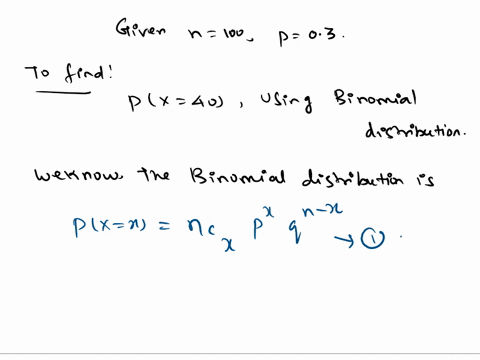 Given n=100, p=0.3.
To find:
P(X=40), Using Binomial
distribution.
We know the Binomial distribution is
P(X=x) = nc_x p^x q^{n-x} → ①.